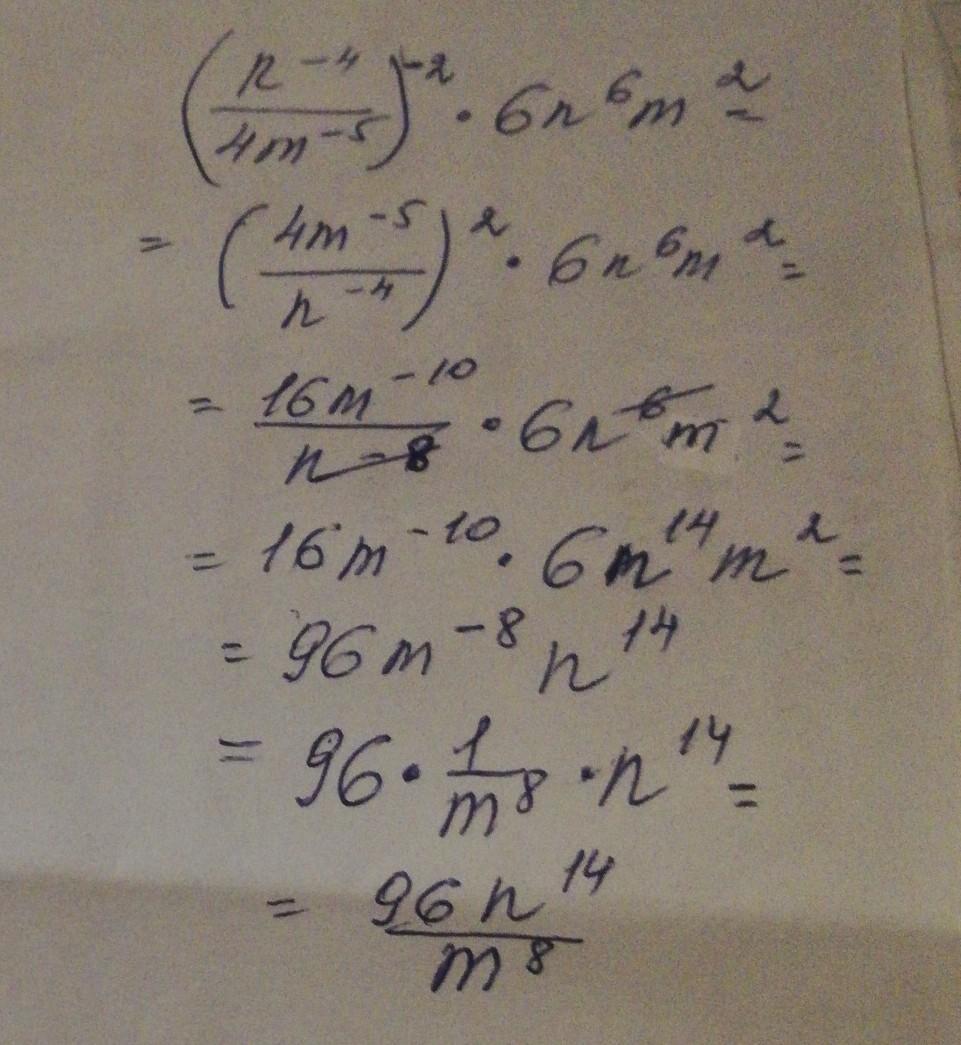 (n⁻⁴/4m⁻⁵)⁻² · 6n⁶m² =
= (4m⁻⁵/n⁻⁴)² · 6n⁶m² =
= 16m⁻¹⁰/n⁻⁸ · 6n⁶m² =
= 16m⁻¹⁰ · 6n¹⁴m² =
= 96m⁻⁸n¹⁴
= 96 · 1/m⁸ · n¹⁴ =
= 96n¹⁴/m⁸